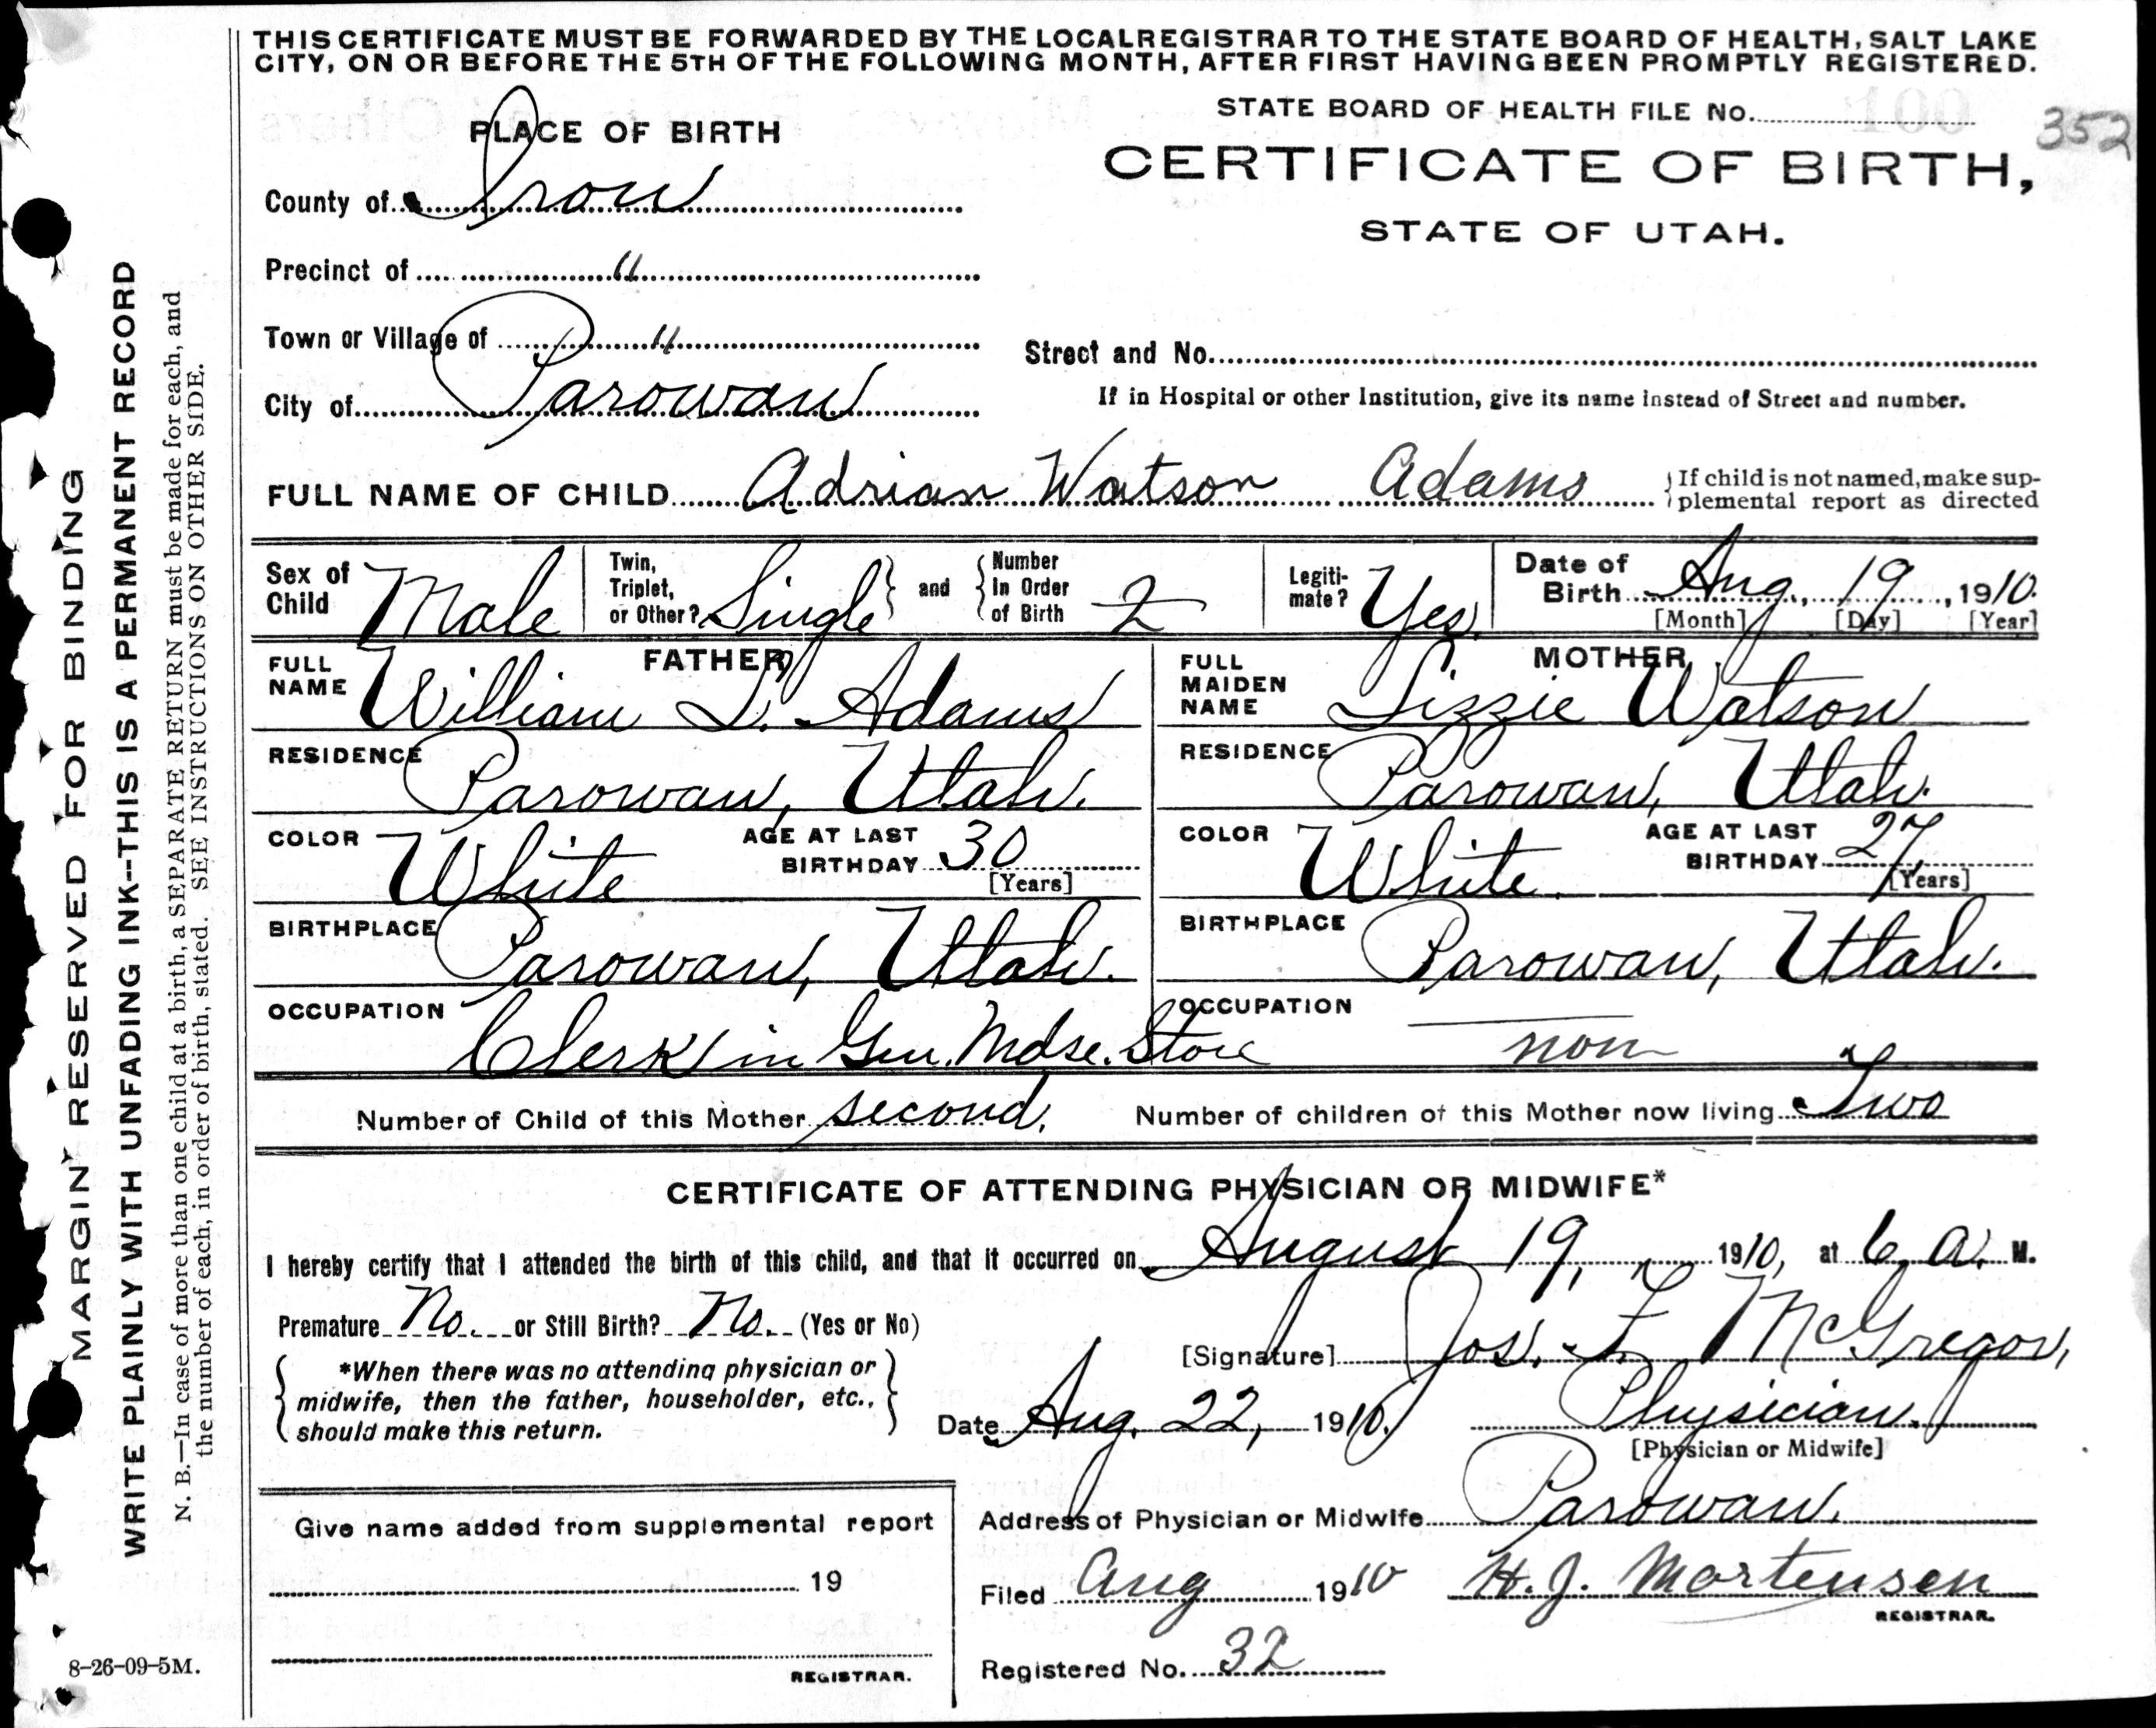 THIS CERTIFICATE MUST BE FORWARDED BY THE LOCAL REGISTRAR TO THE STATE BOARD OF HEALTH, SALT LAKE
CITY, ON OR BEFORE THE 5TH OF THE FOLLOWING MONTH, AFTER FIRST HAVING BEEN PROMPTLY REGISTERED.
STATE BOARD OF HEALTH FILE No. 352
CERTIFICATE OF BIRTH,
STATE OF UTAH.
PLACE OF BIRTH
County of Iron
Precinct of "
Town or Village of "
City of Parowan
Street and No.
If in Hospital or other Institution, give its name instead of Street and number.
FULL NAME OF CHILD Adrian Watson Adams { If child is not named, make sup-
plemental report as directed
Sex of Child Male
Twin, Triplet, or Other? Single } and { Number In Order of Birth 2
Legiti-mate? Yes.
Date of Birth Aug., 19, 1910.
[Month] [Day] [Year]
FATHER
FULL NAME William L. Adams
RESIDENCE Parowan, Utah.
COLOR White AGE AT LAST BIRTHDAY 30
[Years]
BIRTHPLACE Parowan, Utah.
OCCUPATION Clerk in Gen. Mdse. Store
MOTHER
FULL MAIDEN NAME Lizzie Watson
RESIDENCE Parowan, Utah.
COLOR White AGE AT LAST BIRTHDAY 27
[Years]
BIRTHPLACE Parowan, Utah.
OCCUPATION non
Number of Child of this Mother second. Number of children of this Mother now living Two
CERTIFICATE OF ATTENDING PHYSICIAN OR MIDWIFE*
I hereby certify that I attended the birth of this child, and that it occurred on August 19, 1910, at 6 a. M.
Premature No. or Still Birth? No. (Yes or No)
{ *When there was no attending physician or
midwife, then the father, householder, etc.,
should make this return. }
[Signature] Jos. F. McGregor,
Date Aug. 22, 1910. Physician.
[Physician or Midwife]
Address of Physician or Midwife Parowan.
Filed Aug 1910 H. J. Mortensen
REGISTRAR.
Registered No. 32
Give name added from supplemental report
19
REGISTRAR.
MARGIN RESERVED FOR BINDING
WRITE PLAINLY WITH UNFADING INK--THIS IS A PERMANENT RECORD
N. B.—In case of more than one child at a birth, a SEPARATE RETURN must be made for each, and
the number of each, in order of birth, stated. SEE INSTRUCTIONS ON OTHER SIDE.
8-26-09-5M.